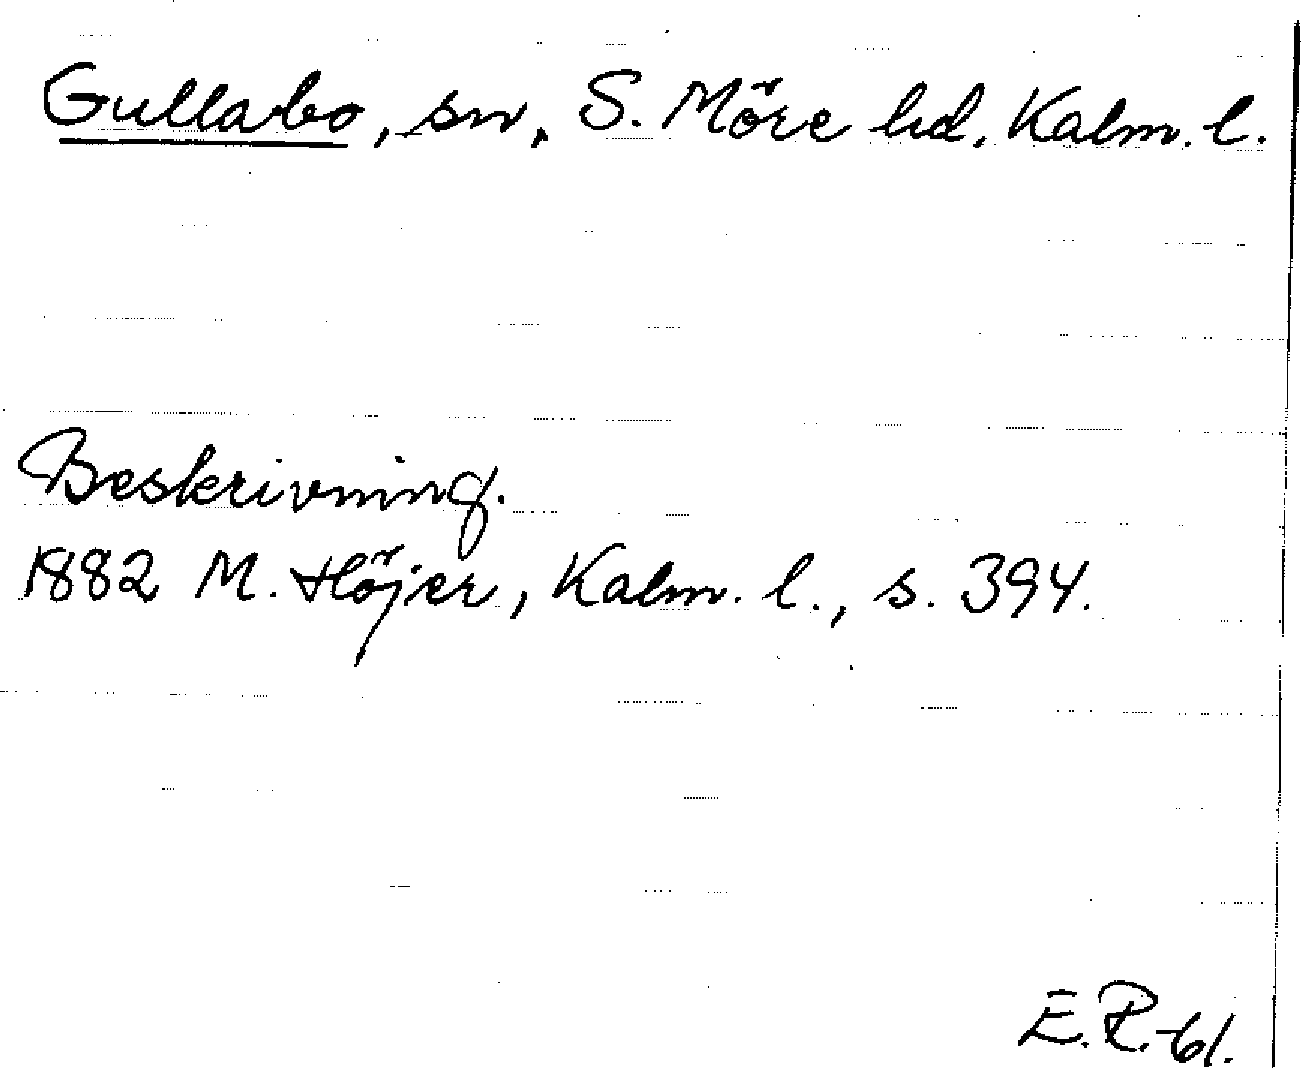 Gullabo, sn, S. Möre hd, Kalm. l.
Beskrivning.
1882 M. Höjer, Kalm. l., s. 394.
E.R.-61.